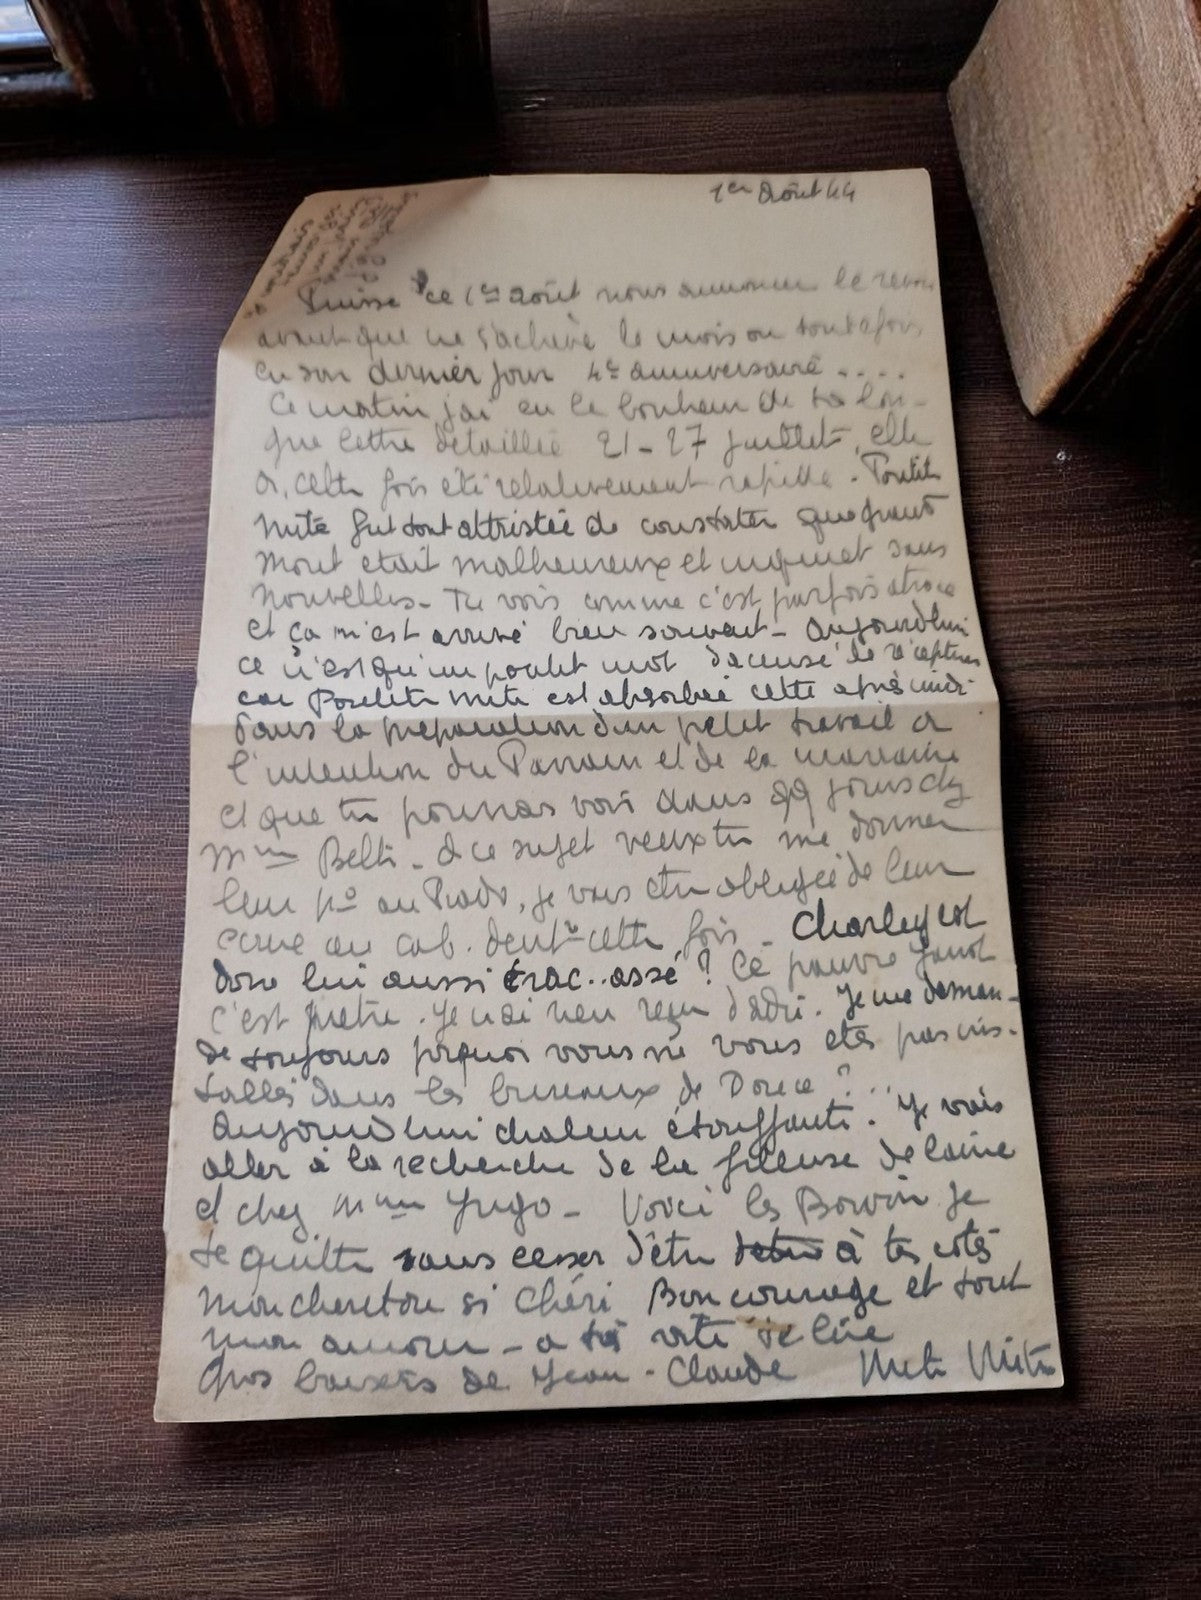 1er Août 44
Puisse ce 1er août nous annoncer le revoir
avant que ne s'achève le mois ou toutefois
en son dernier jour 4e anniversaire ....
Ce matin j'ai eu le bonheur de ta lon-
gue lettre détaillée 21-27 juillet, elle
a, cette fois été relativement rapide. Poulett
mite fut tout attristée de constater que grand
Mout etait malheureux et inquiet sans
nouvelles - Tu vois comme c'est parfois atroce
et ça m'est arrivé bien souvent - Aujourd'hui
ce n'est qu'un poulet mot d'accusé de réception
car Poulette mite est absorbée cette après midi
dans la préparation d'un petit travail à
l'intention du Parrain et de la marraine
et que tu pourras voir dans qq jours chez
Mme Belti - à ce sujet veux tu me donner
leur no au Prado, je vais être obligée de leur
écrire au cab. dentre cette fois - Charley est
donc lui aussi trac..assé ? Ce pauvre Janot
c'est piètre. Je n'ai rien reçu d'adri. Je me deman-
de toujours pquoi vous ne vous êtes pas ins-
tallés dans les bureaux de Doree ?
Aujourd'hui chaleur étouffante. Je vais
aller à la recherche de la fileuse de laine
et chez Mme Jugo - Voici les Bowin je
te quitte sans cesser d'être à tes côtés
mon chereton si chéri Bon courage et tout
mon amour - a très vite de lire
Gros baisers de Jean-Claude Mite Mite